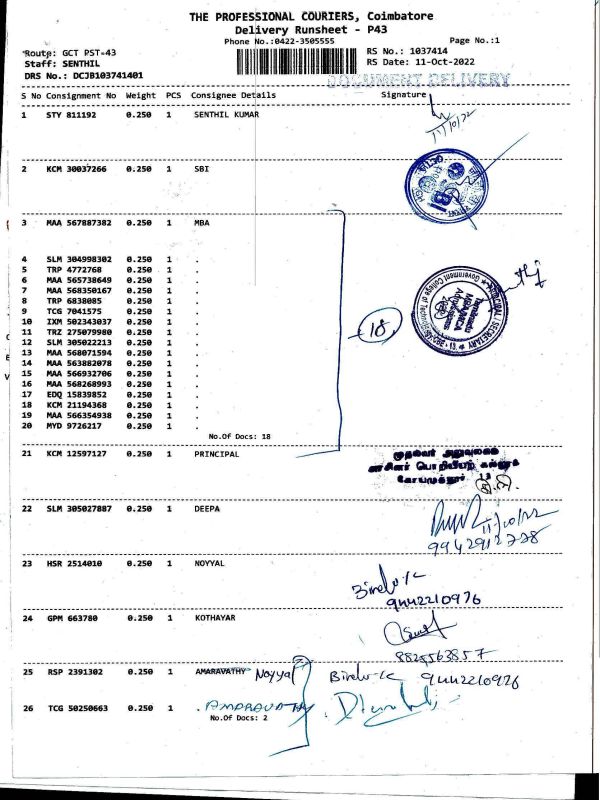 THE PROFESSIONAL COURIERS, Coimbatore
Delivery Runsheet - P43
Phone No.:0422-3505555
Page No.:1
Route: GCT PST=43
RS No.: 1037414
Staff: SENTHIL
RS Date: 11-Oct-2022
DRS No.: DCJB103741401
DOCUMENT DELIVERY
S No Consignment No Weight PCS Consignee Details Signature
1 STY 811192 0.250 1 SENTHIL KUMAR
11/10/22
2 KCM 30037266 0.250 1 SBI
3 MAA 567887382 0.250 1 MBA
4 SLM 304998302 0.250 1 .
5 TRP 4772768 0.250 1 .
6 MAA 565738649 0.250 1 .
7 MAA 568350167 0.250 1 .
8 TRP 6838085 0.250 1 .
9 TCG 7041575 0.250 1 .
10 IXM 502343037 0.250 1 .
11 TRZ 275079980 0.250 1 .
12 SLM 305022213 0.250 1 .
13 MAA 568071594 0.250 1 .
14 MAA 563882078 0.250 1 .
15 MAA 566932706 0.250 1 .
16 MAA 568268993 0.250 1 .
17 EDQ 15839852 0.250 1 .
18 KCM 21194368 0.250 1 .
19 MAA 566354938 0.250 1 .
20 MYD 9726217 0.250 1 .
18
No.Of Docs: 18
21 KCM 12597127 0.250 1 PRINCIPAL
முதல்வர் அலுவலகம்
அரசினர் பொறியியற் கல்லூரி
கோயமுத்தூர் 13
22 SLM 305027887 0.250 1 DEEPA
11/10/22
9942912778
23 HSR 2514010 0.250 1 NOYYAL
9442210976
24 GPM 663780 0.250 1 KOTHAYAR
8825563857
25 RSP 2391302 0.250 1 AMARAVATHY Noyyal 9442210976
26 TCG 50250663 0.250 1 . AMARAVATHY
No.Of Docs: 2